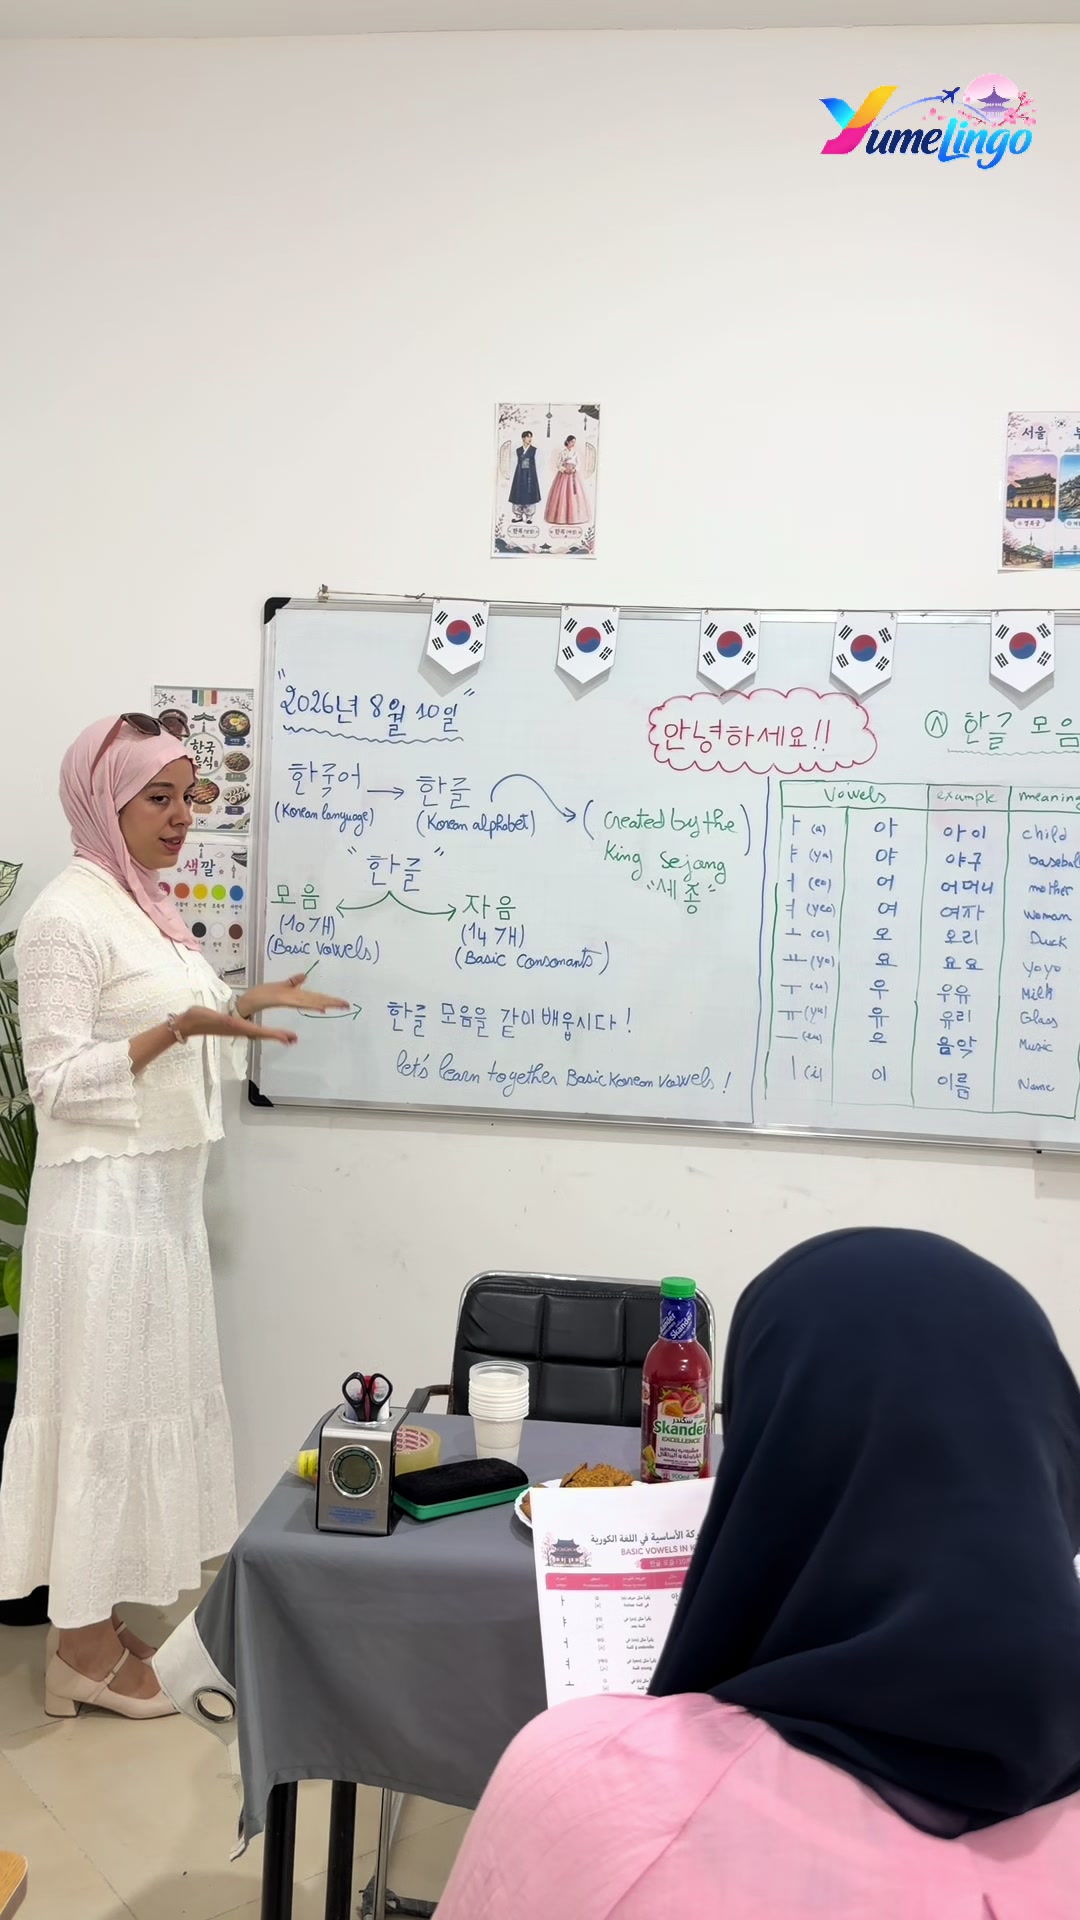 YumeLingo
서울
"2026년 8월 10일"
안녕하세요!!
① 한글 모음
한국어 → 한글
(Korean language)
(Korean alphabet)
(created by the
King Sejong
"세종"
"한글"
모음
자음
(10개)
(14개)
(Basic Vowels)
(Basic Consonants)
한글 모음을 같이 배웁시다!
let's learn together Basic Korean Vowels!
Vowels example meaning
ㅏ (a) 아 아이 child
ㅑ (ya) 야 야구 baseball
ㅓ (eo) 어 어머니 mother
ㅕ (yeo) 여 여자 Woman
ㅗ (o) 오 오리 Duck
ㅛ (yo) 요 요요 yoyo
ㅜ (u) 우 우유 Milk
ㅠ (yu) 유 유리 Glass
ㅡ (eu) 으 음악 Music
ㅣ (i) 이 이름 Name
한국
음식
색깔
Skander
سكندر
Skander
EXCELLENCE
900ml
الأساسية في اللغة الكورية
BASIC VOWELS IN
ㅏ
ㅑ
ㅓ
ㅕ
ㅗ